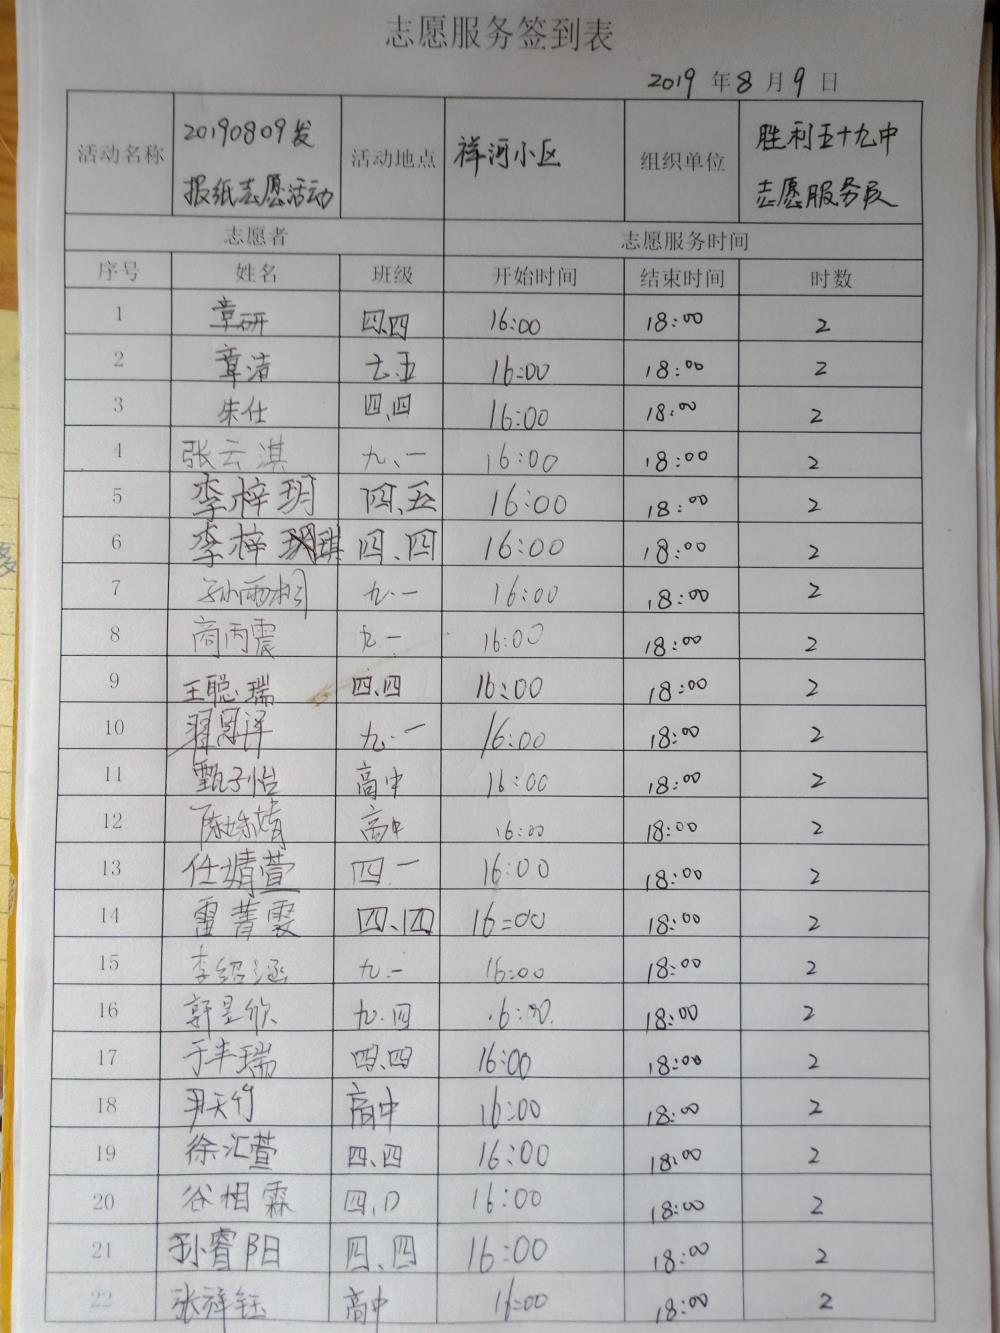 志愿服务签到表
2019 年 8 月 9 日
活动名称 20190809发报纸志愿活动 活动地点 祥河小区 组织单位 胜利五十九中志愿服务队
志愿者 志愿服务时间
序号 姓名 班级 开始时间 结束时间 时数
1 章研 四.四 16:00 18:00 2
2 章清 七.五 16:00 18:00 2
3 朱仕 四.四 16:00 18:00 2
4 张云淇 九、一 16:00 18:00 2
5 李梓玥 四、五 16:00 18:00 2
6 李梓琪 四、四 16:00 18:00 2
7 孙雨桐 九.一 16:00 18:00 2
8 商丙震 九.一 16:00 18:00 2
9 王聪瑞 四.四 16:00 18:00 2
10 九.一 16:00 18:00 2
11 甄子怡 高中 16:00 18:00 2
12 高中 16:00 18:00 2
13 任婧萱 四一 16:00 18:00 2
14 雷菁雯 四、四 16:00 18:00 2
15 李绍涵 九.一 16:00 18:00 2
16 郭昱欣 九.四 16:00 18:00 2
17 于丰瑞 四.四 16:00 18:00 2
18 尹天竹 高中 16:00 18:00 2
19 徐汇萱 四、四 16:00 18:00 2
20 谷相霖 四、 16:00 18:00 2
21 孙睿阳 四、四 16:00 18:00 2
22 张祥钰 高中 16:00 18:00 2